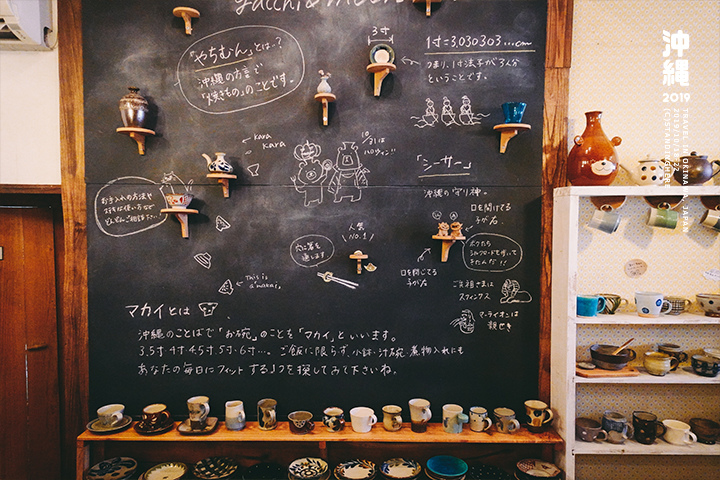 yacchi&moon
「やちむん」とは…?
沖縄の方言で
「焼きもの」のことです。
3寸
1寸=3.030303…cm
つまり、1寸法子が3人分
ということです。
kara
kara
10/31は
ハロウィン!!
「シーサー」
沖縄の守り神。
口を開けてる
子が右。
口を閉じてる
子が左
ご先祖さまは
スフィンクス
マーライオンは
お手入れの方法や
どんどんご相談下さい
穴に箸を
通します
人気
No.1
This is
a "makai."
マカイとは
沖縄のことばで「お碗」のことを「マカイ」といいます。
3.5寸・4寸・4.5寸・5寸・6寸…。ご飯に限らず、小鉢・汁碗・煮物入れにも
あなたの毎日にフィットする1つを探してみて下さいね。
沖縄
2019
TRAVEL IN OKINAWA, JAPAN